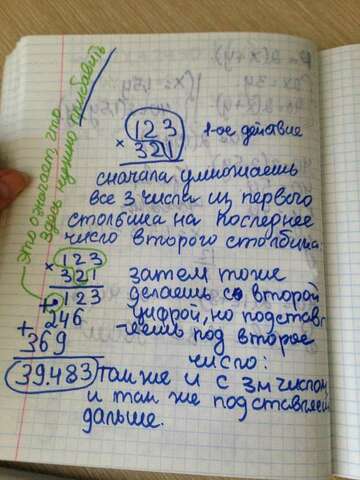 Это означает, что
здесь нужно прибавить
123
× 321
1-ое действие
сначала умножаешь
все 3 числа из первого
столбика на последнее
число второго столбица.
× 123
321
+ 123
+ 246
369
39.483
затем тоже
делаешь со второй
цифрой, но подставл
-яешь под второе
число:
там же и с 3м числом
и там же подставляем
дальше.